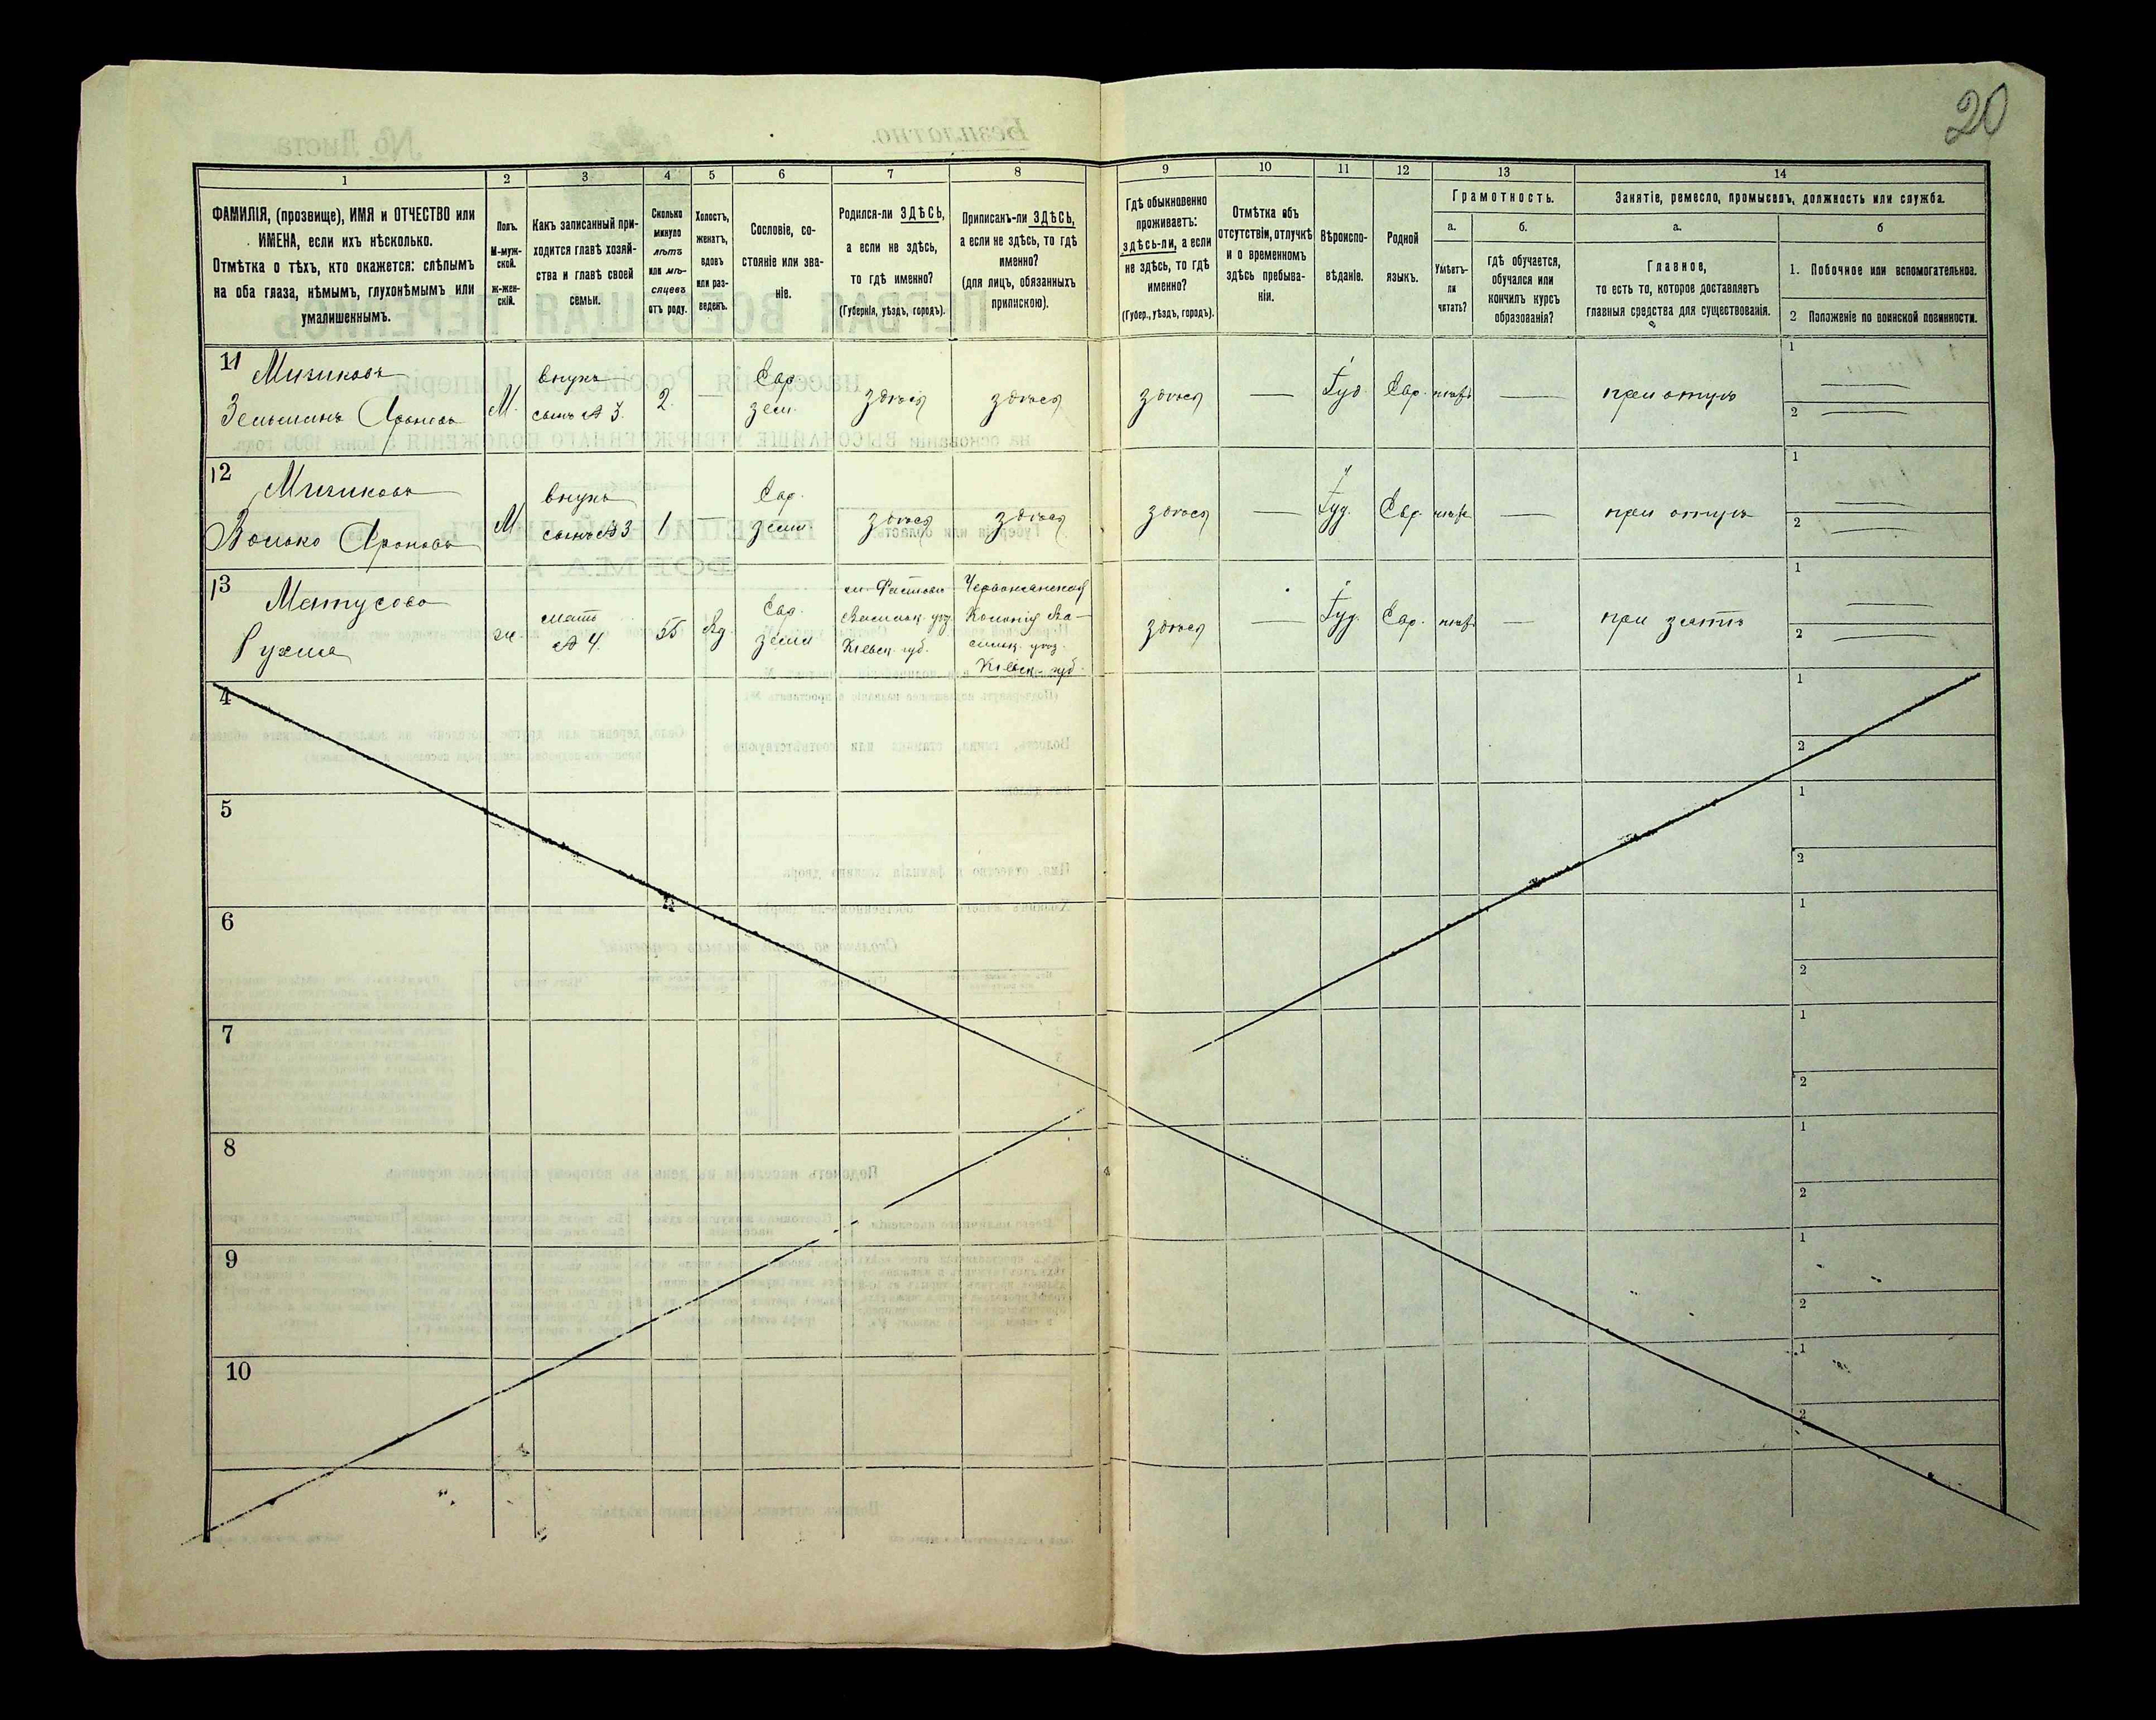 20
1
2
3
4
5
6
7
8
9
10
11
12
13
14
ФАМИЛІЯ, (прозвище), ИМЯ и ОТЧЕСТВО или
ИМЕНА, если ихъ нѣсколько.
Отмѣтка о тѣхъ, кто окажется: слѣпымъ
на оба глаза, нѣмымъ, глухонѣмымъ или
умалишеннымъ.
Полъ.
М-муж-
ской.
ж-жен-
скій.
Какъ записанный при-
ходится главѣ хозяй-
ства и главѣ своей
семьи.
Сколько
минуло
лѣтъ
или мѣ-
сяцевъ
отъ роду.
Холостъ,
женатъ,
вдовъ
или раз-
веденъ.
Сословіе, со-
стояніе или зва-
ніе.
Родился-ли ЗДѢСЬ,
а если не здѣсь,
то гдѣ именно?
(Губернія, уѣздъ, городъ).
Приписанъ-ли ЗДѢСЬ,
а если не здѣсь, то гдѣ
именно?
(для лицъ, обязанныхъ
припискою).
Гдѣ обыкновенно
проживаетъ:
здѣсь-ли, а если
не здѣсь, то гдѣ
именно?
(Губер., уѣздъ, городъ).
Отмѣтка объ
отсутствіи, отлучкѣ
и о временномъ
здѣсь пребыва-
ніи.
Вѣроиспо-
вѣданіе.
Родной
языкъ.
Грамотность.
а.
Умѣетъ-
ли
читать?
б.
гдѣ обучается,
обучался или
кончилъ курсъ
образованія?
Занятіе, ремесло, промыселъ, должность или служба.
а.
Главное,
то есть то, которое доставляетъ
главныя средства для существованія.
б
1. Побочное или вспомогательное.
2 Положеніе по воинской повинности.
11
Зельманъ Ароновъ
М.
внукъ
сынъ № 3.
2
Евр.
зем.
здѣсь
здѣсь
здѣсь
Іуд.
Евр.
нѣтъ
при отцѣ
1
2
12
Волько Ароновъ
М.
внукъ
сынъ № 3
1
Евр.
зем.
здѣсь
здѣсь
здѣсь
Іуд.
Евр.
нѣтъ
при отцѣ
1
2
13
Матусова
Рухля
ж.
мать
№ 4.
55
Вд.
Евр.
зем
м. Фастовъ
Васильк. уѣз.
Кіевск. губ.
Колонія Ва-
сильк. уѣз.
Кіевск. губ.
здѣсь
Іуд.
Евр.
нѣтъ
при зятѣ
1
2
4
1
2
5
1
2
6
1
2
7
1
2
8
1
2
9
1
2
10
1
2